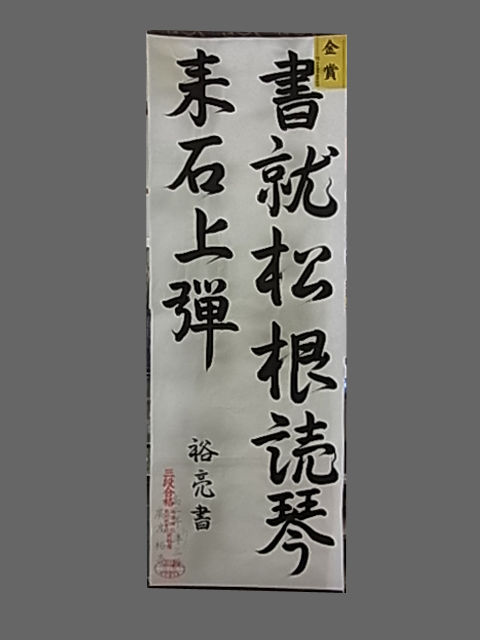 金賞
書就松根読琴
来石上弾
裕亮書
三段合格